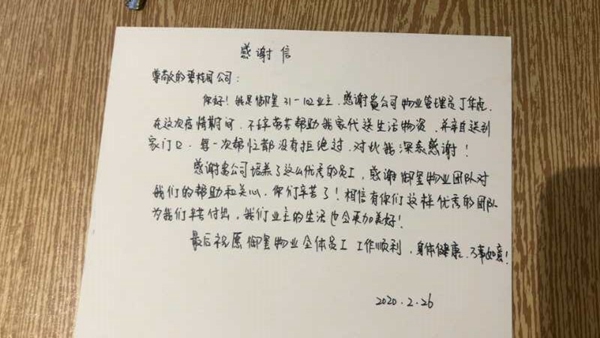 感谢信
尊敬的碧桂园公司：
你好！我是御墅31-102业主，感谢贵公司物业管理员丁华彪
在这次疫情期间，不辞劳苦帮助我家代送生活物资，并亲自送到
家门口，每一次帮忙都没有拒绝过，对此我深表感谢！
感谢贵公司培养了这么优秀的员工，感谢御墅物业团队对
我们的帮助和关心，你们辛苦了！相信有你们这样优秀的团队
为我们辛苦付出，我们业主的生活也会更加美好！
最后祝愿御墅物业全体员工工作顺利，身体健康，万事如意！
2020.2.26